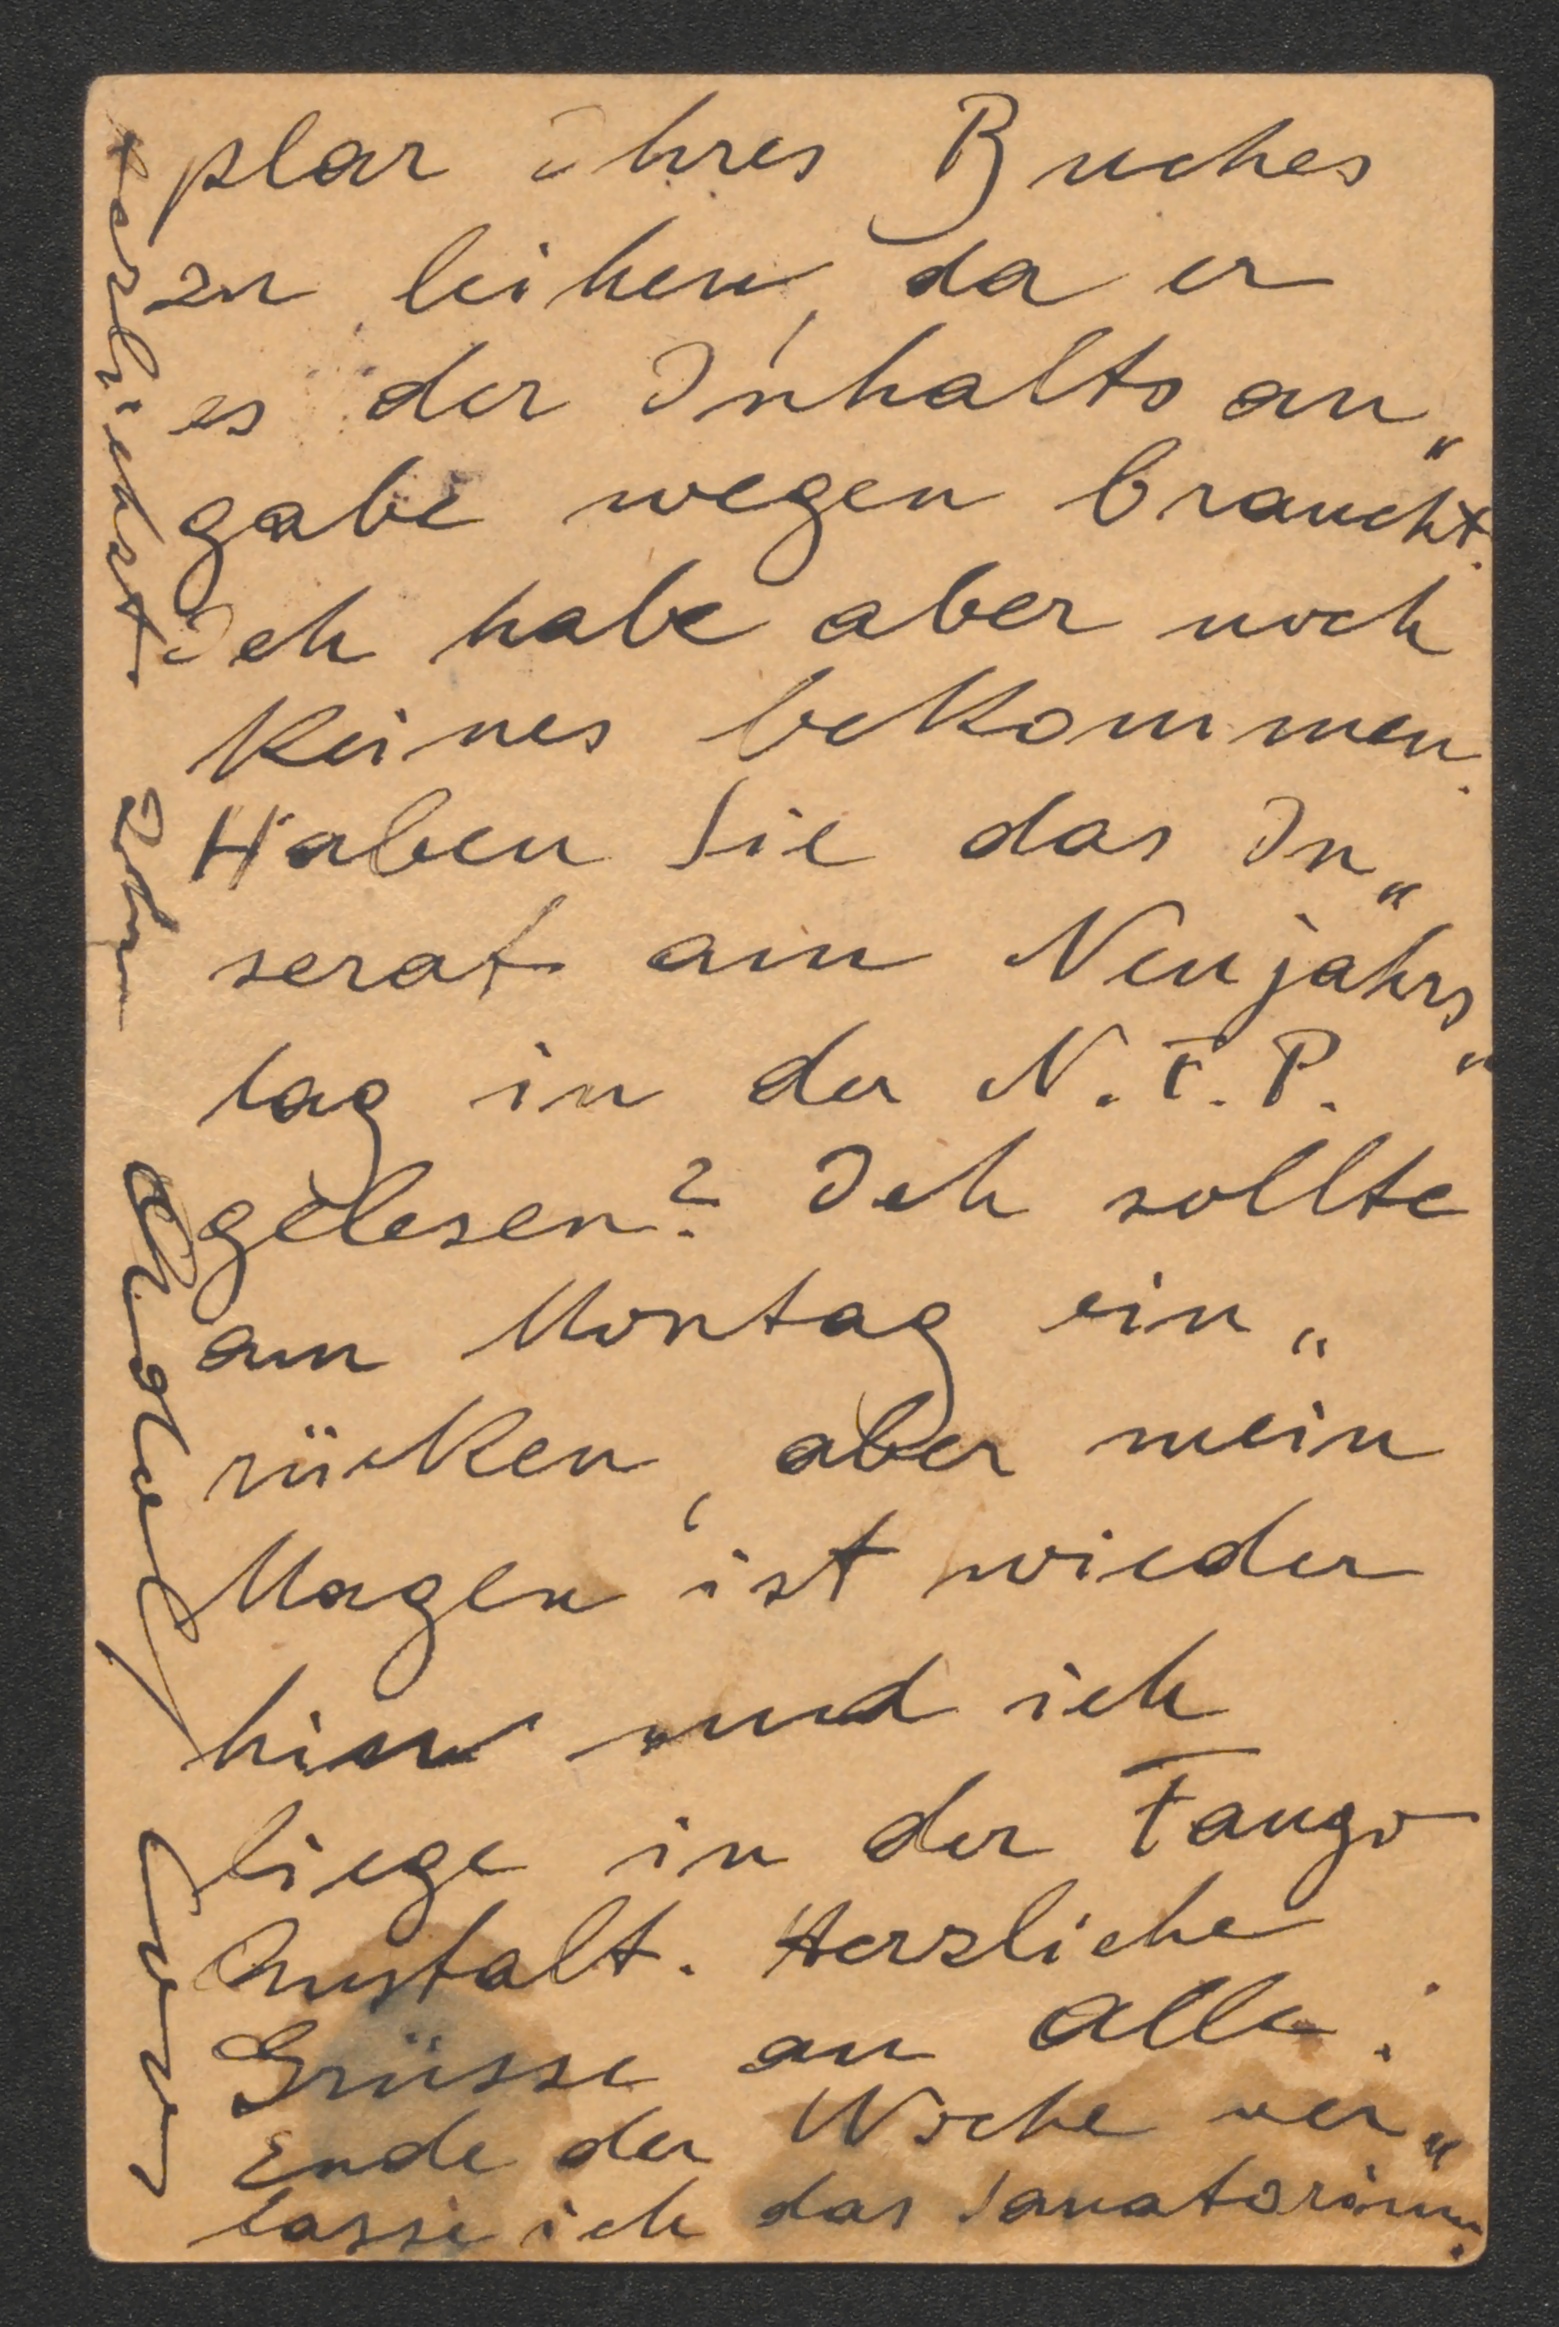 plar Ihres Buches
zu leihen, da er
es der Inhaltsan„
gabe wegen braucht.
Ich habe aber noch
keines bekommen.
Haben Sie das In„
serat am Neujahrs„
tag in der N. F. P.
gelesen? Ich sollte
am Montag ein„
rücken, aber mein
Magen ist wieder
hin und ich
liege in der Fango
Anstalt. Herzliche
Grüsse an Alle!
Ende der Woche ver„
lasse ich das Sanatorium.
herzlichst Ihr